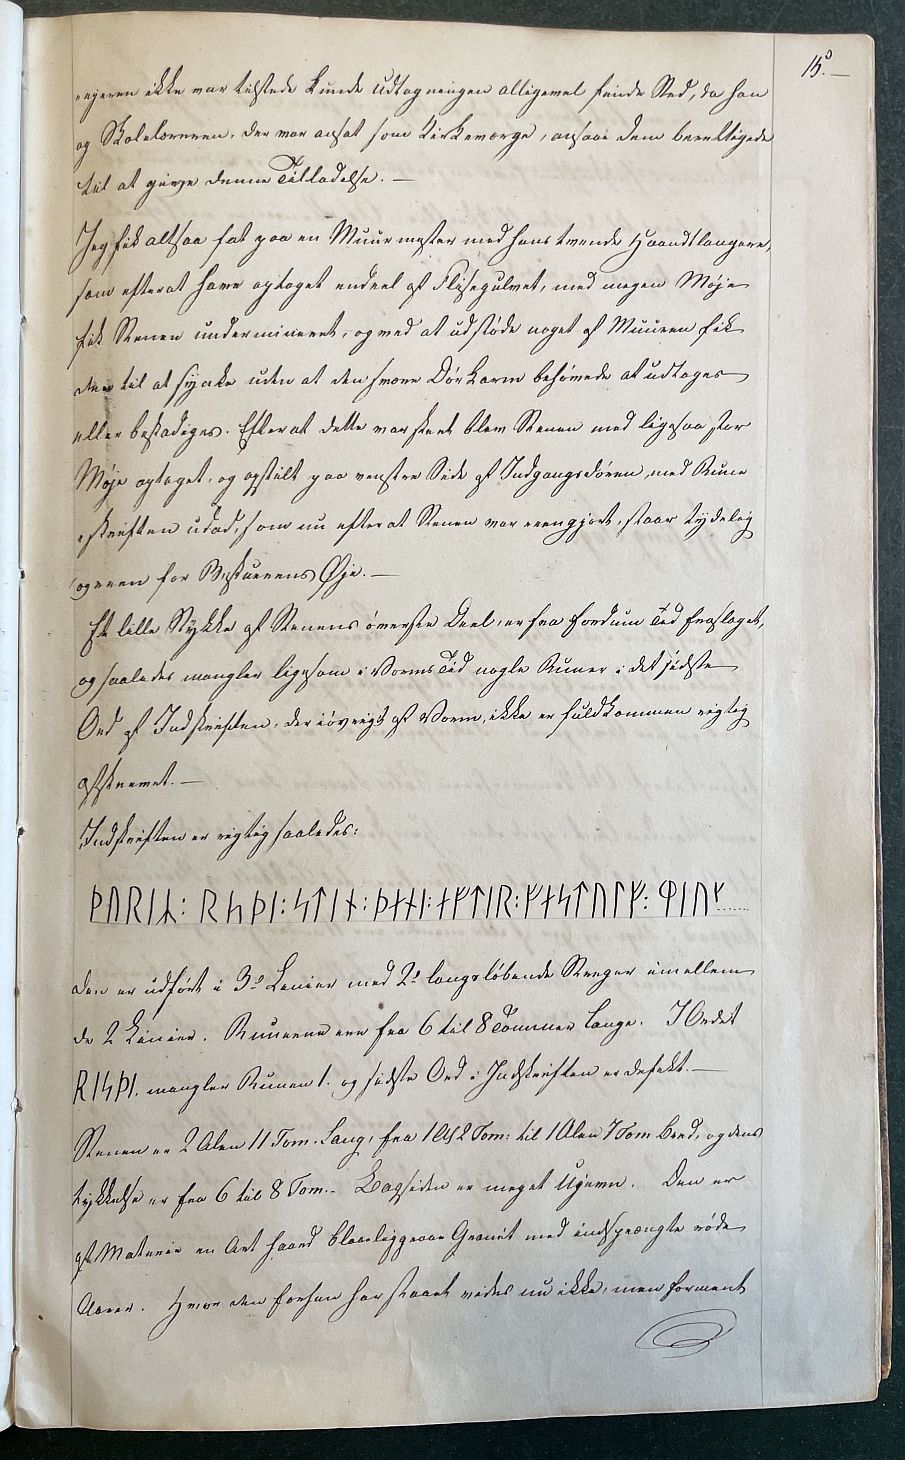 15.
ikke var tilstede kunde Udtagningen alligevel finde Sted, da han
og Skolelæreren, der var ansat som Kirkeværge, ansaae dem berettigede
til at give denne Tilladelse. —
Jeg fik altsaa fat paa en Muurmester med hans tvende Haandlangere,
som efterat have optaget endeel af Flisegulvet, med megen Møje
fik Stenen undermineret, og ved at udstøde noget af Muuren fik
den til at synke uden at den svære Dör Karm behövede at udtages
eller beskadiges. Efterat dette var skeet blev Stenen med ligesaa stor
Møje optaget, og opstilt paa venstre Side af Indgangsdören, med Rune
skriften udad, som nu efterat Stenen var reengjort, staar tydelig
og reen for Beskuerens Øje. —
Et lille Stykke af Stenens överste Deel, er fra fordum Tid fraslaget,
og saaledes mangler ligesom i Worms Tid nogle Runer i det sidste
Ord af Indskriften, der iövrigt af Worm, ikke er fuldkommen rigtig
afskrevet. —
Indskriften er rigtig saaledes:
ᚦᚢᚱᛁᛣ: ᚱᛋᚦᛁ: ᛋᛏᛁᚾ: ᚦᚾᚾᛁ: ᚾᚠᛏᛁᚱ: ᚠᚾᛋᛏᚢᛚᚠ: ᛩᛁᚢᚴ......
Den er udfört i 3 Linier med 2 langslöbende Streger imellem
de 2 Linier. Runerne ere fra 6 til 8 Tommer lange. I Ordet
ᚱᛁᛋᚦᛁ. mangler Runen ᛁ. og sidste Ord i Indskriften er defekt. —
Stenen er 2 Alen 11 Tom. Lang, fra 1 Al 2 Tom: til 1 Alen 7 Tom bred, og dens
tykkelse er fra 6 til 8 Tom. – Bagsiden er meget Ujevn. Den er
af Materie en Art haard blaaliggraae Granit med indsprængte röde
Aarer. Hvor den forhen har staaet vides nu ikke, men forment